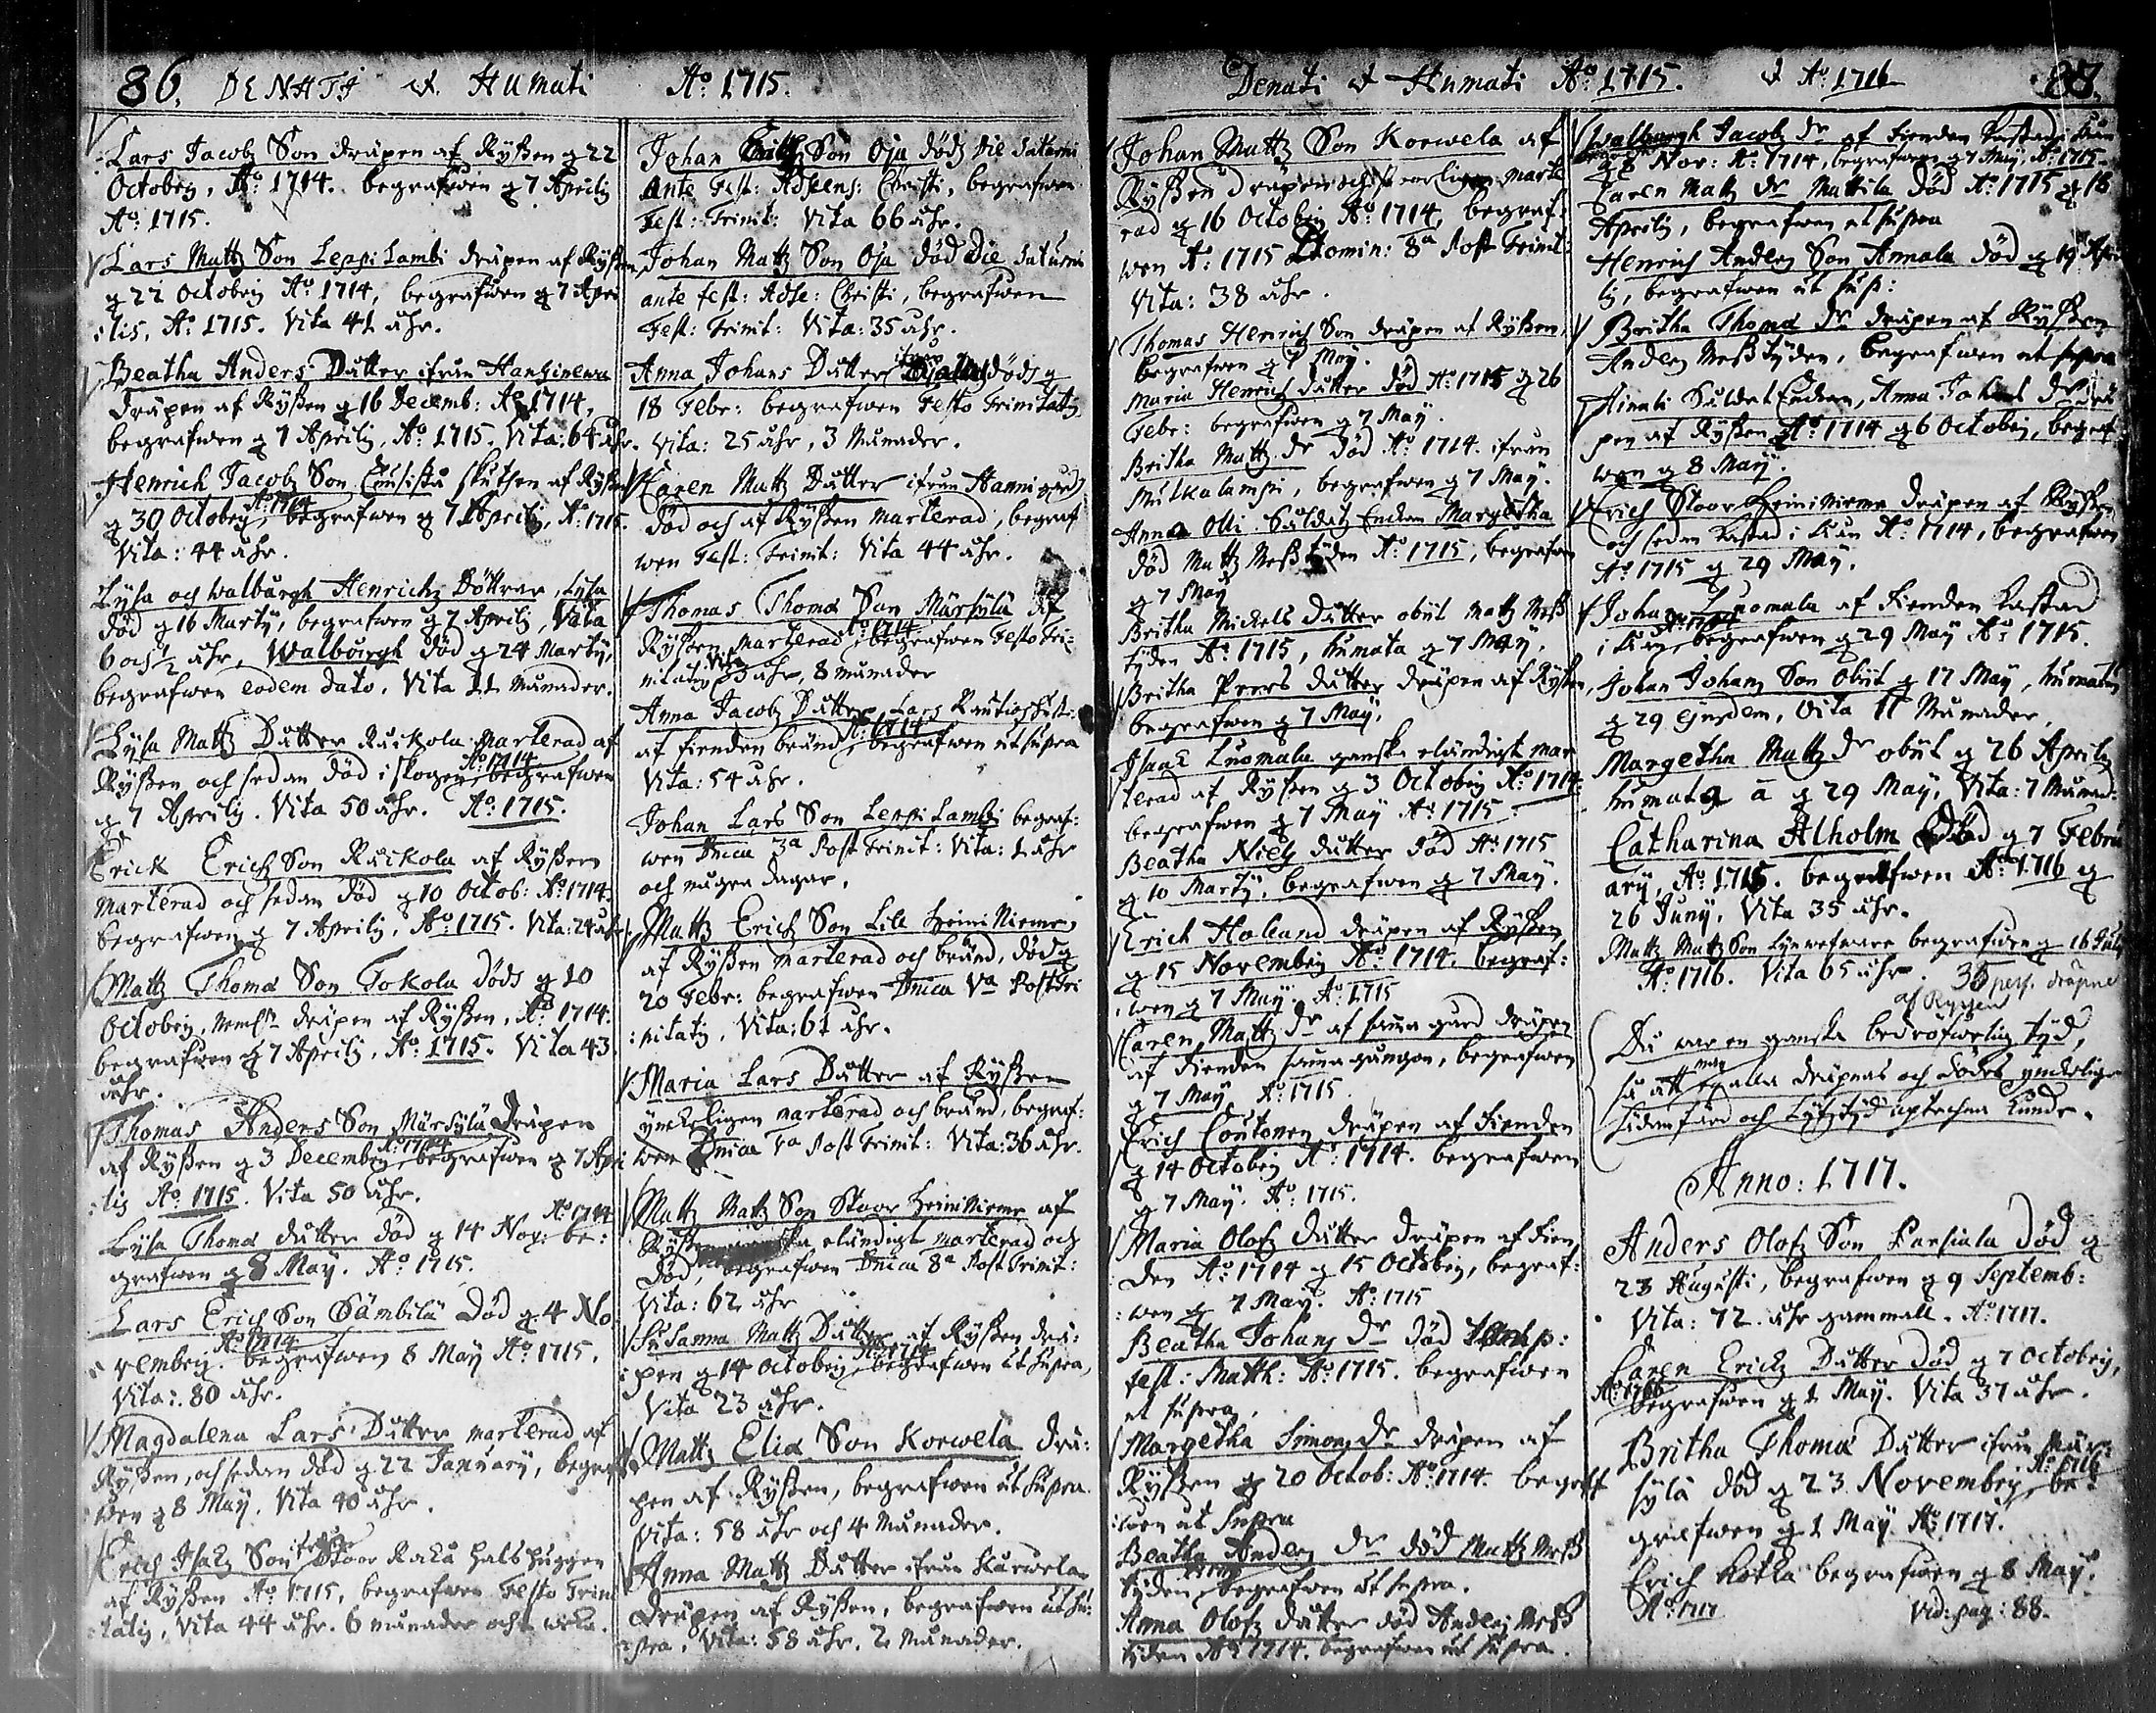 86. DENATI & Humati Aº: 1715.
Lars Jacobz Son dräpen af Ryßen 22
Octobris, Aº: 1714. begrafwen 7 Aprilis
Aº: 1715.
Lars Mattz Son Leppilambi dräpen af Ryßen
22 Octobris Aº 1714, begrafwen 7 Apri
:lis, Aº: 1715. Vita 41 åhr.
Beatha Anders Dåtter ifrån
dräpen af Ryßen 16 Decemb: Aº 1714,
begrafwen 7 Aprilis, Aº: 1715. Vita: 64 åhr.
Henrich Jacobz Son skuthen af Ryßen
30 Octobris, Aº: 1714 begrafwen 7 Aprilis, Aº: 1715.
Vita: 44 åhr.
Lysa och Walborgh Henrichz Döttrar, Lysa
död 16 Martÿ, begrafwen 7 Aprilis, Vita
6 och ½ åhr, Walborgh död 24 Martÿ,
begrafwen eodem dato. Vita 11 månader.
Lysa Mattz Dåtter Räickola marterad af
Ryßen och sedan död i skogen, Aº: 1714 begrafwen
7 Aprilis. Vita 50 åhr. Aº: 1715.
Erick Erichz Son Räickola af Ryßen
marterad och sedan död 10 Octob: Aº: 1714.
begrafwen 7 Aprilis, Aº: 1715. Vita: 24 åhr.
Mattz Thomæ Son Tokola död 10
Octobris, dräpen af Ryßen, Aº: 1714.
begrafwen 7 Aprilis, Aº: 1715. Vita 43
åhr.
Thomas Anders Son Märsylä dräpen
af Ryßen 3 Decembris, Aº: 1714 begrafwen 7 Apri
:lis Aº: 1715. Vita 50 åhr.
Lysa Thomæ dåtter död 14 Nov: Aº: 1714 be:
grafwen 8 May. Aº: 1715.
Lars Erichz Son Sämbilä död 4 No
vembris. Aº: 1714 begrafwen 8 May Aº: 1715.
Vita: 80 åhr.
Magdalena Lars Dåtter marterad af
Ryßen, och sedan död 22 January, begraf
wen 8 May. Vita 40 åhr.
Erich Isakz Son ifrån Stoor Raka halshuggen
af Ryßen Aº 1715, begrafwen Festo Trini
:tatis, Vita 44 åhr. 6 månader och 1 wika.
Johan Son Oja död Die Saturni
Ante Fest: Adscens: Christi, begrafwen
Fest: Trinit: Vita 66 åhr.
Johan Mattz Son Oja död Die Saturni
ante fest: Adsc: Christi, begrafwen
Fest: Trinit: Vita: 35 åhr.
Anna Johans Dåtter ifrån död
18 Febr: begrafwen Festo Trinitatis,
Vita: 25 åhr, 3 Månader.
Caren Mattz Dåtter ifrån
död och af Ryßen marterad, begraf
wen Fest: Trinit: Vita 44 åhr.
Thomas Thomæ Son Märsylä af
Ryßen marterad, Aº: 1714 begrafwen Festo Tri:
nitatis, Vita 33 åhr, 8 månader
Anna Jacobz Dåtter, Lars Rautios hust:
af fienden bränd, Aº: 1714 begrafwen ut supra
Vita: 54 åhr.
Johan Lars Son Leppilambi begraf:
wen Dnica 3a Post Trinit: Vita: 1 åhr
och några dagar.
Mattz Erichz Son Lill Heininiemi
af Ryßen marterad och bränd, död
20 Febr: begrafwen Dnica Va Post Tri
:nitatis, Vita: 61 åhr.
Maria Lars Dåtter af Ryßen
ynckeligen marterad och bränd, begraf:
wen Dnica Va Post Trinit: Vita: 36 åhr.
Mattz Mattz Son Stoor Heininiemi af
Ryßen eländigt marterad och
död, begrafwen Dnica 8a Post Trinit:
Vita: 62 åhr
Susanna Mattz Dåtter af Ryßen drä:
:pen 14 Octobris, Aº: 1714 begrafwen ut supra,
Vita 23 åhr.
Mattz Eliæ Son Korwela drä:
pen af Ryßen, begrafwen ut supra.
Vita: 58 åhr och 4 Månader.
Anna Mattz Dåtter ifrån Karwela
dräpen af Ryßen, begrafwen ut su:
:pra, Vita: 58 åhr. 2 Månader.
Denati & Humati Aº: 1715. & Aº: 1716 87.
Johan Mattz Son Korwela af
Ryßen dräpen och marte
rad 16 Octobris Aº: 1714, begraf:
wen Aº: 1715 Domin: 8a Post Trinit:
Vita: 38 åhr.
Thomas Henrich Son dräpen af Ryßen,
begrafwen 7 May.
Maria Henrich dåtter död Aº: 1715 26
Febr: begrafwen 7 May.
Britha Mattz dr död Aº: 1714. ifrån
Mutkalampi, begrafwen 7 May.
Anna Olli Soldat Enckan Margetha
död Mattz Meß tyden Aº: 1715, begrafwen
7 May
Britha Mickels dåtter obiit Mattz Meß
tyden Aº: 1715, humata 7 May.
Britha Peers dåtter dräpen af Ryßen,
begrafwen 7 May.
Isaac Luomala ganska eländigt mar
terad af Ryßen 3 Octobris Aº: 1714.
begrafwen 7 May Aº: 1715
Beatha Nielz dåtter död Aº: 1715
10 Martÿ, begrafwen 7 May.
Erich Holand dräpen af Ryßen
15 Novembris Aº: 1714. begraf:
:wen 7 May. Aº: 1715
Caren Mattz dr af samma gård dräpen
af fienden samma gången, begrafwen
7 May Aº: 1715
Erich Coutonen dräpen af fienden
14 Octobris Aº: 1714. begrafwen
7 May. Aº: 1715.
Maria Olofz dåtter dräpen af fien
den Aº: 1714 15 Octobris, begraf:
:wen 7 May. Aº: 1715
Beatha Johans dr död :
fest: Matth: Aº: 1715. begrafwen
ut supra.
Margetha Simons dr dräpen af
Ryßen 20 Octob: Aº: 1714. begraf
:wen ut supra
Beatha Anders dr död Mattz Meß
tyden, begrafwen ut supra.
Anna Olofz dåtter död Anders Meß
tyden Aº: 1714. begrafwen ut supra.
Walborgh Jacobz dr af fienden
8 Nov: Aº: 1714, begrafwen 7 May, Aº: 1715.
Caren Mattz dr Mattila död Aº: 1715 18
Aprilis, begrafwen ut supra
Henrich Anders Son Annala död 19 Apri
lis, begrafwen ut sup:
Britha Thomæ dr dräpen af Ryßen
Anders Meß tyden, begrafwen ut supra
Ainali Soldat Enckan, Anna dr drä
pen af Ryßen Aº: 1714 6 Octobris, begraf:
wen 8 May.
Erich Stoor Heininiemi dräpen af Ryßen
och sedan kastad i Aº: 1714, begrafwen
Aº: 1715 29 May.
Johan Luomala af fienden kastad
i Aº: 1714 begrafwen 29 May Aº: 1715.
Johan Johans Son obiit 17 May, humatus
29 ejusdem, Vita 11 Månader.
Margetha Mattz dr obiit 26 Aprilis
humata ä 29 May, Vita: 7 Månad:
Catharina Alholm död 7 Febru
arÿ, Aº: 1715. begrafwen Aº: 1716
26 Junÿ. Vita 35 åhr.
Mattz Mattz Son begrafwen 16 July
Aº: 1716. Vita 65 åhr. 36 pers. dräpne
af Ryssen
Då war en ganska bedröfwelig tyd,
så att man ey alla dräpnas och dödas ynckelige
hädanfärd och Lyfztyd uptechna kunde.
Anno: 1717.
Anders Olofz Son Passiala död
23 Augusti, begrafwen 9 Septemb:
Vita: 72 åhr gammall. Aº: 1717.
Caren Erichz Dåtter död 7 Octobris,
Aº: 1716 begrafwen 1 May. Vita 37 åhr.
Britha Thomæ Dåtter ifrån Mär:
sylä död 23 Novembris, Aº: 1716 be:
grafwen 1 May Aº: 1717.
Erich Kotka begrafwen 8 May.
Aº: 1717 Vid: pag: 88.